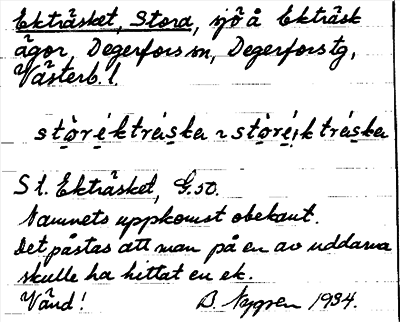 Ekträsket, Stora, sjö å Ekträsk
ägor, Degerfors sn, Degerfors tg,
Västerb. l.
stòréktrèska ~ stòréktrèska
St. Ekträsket, G.50.
Namnets uppkomst obekant.
Det påstas att man på en av uddarna
skulle ha hittat en ek.
Vänd! B. Nygren 1934.